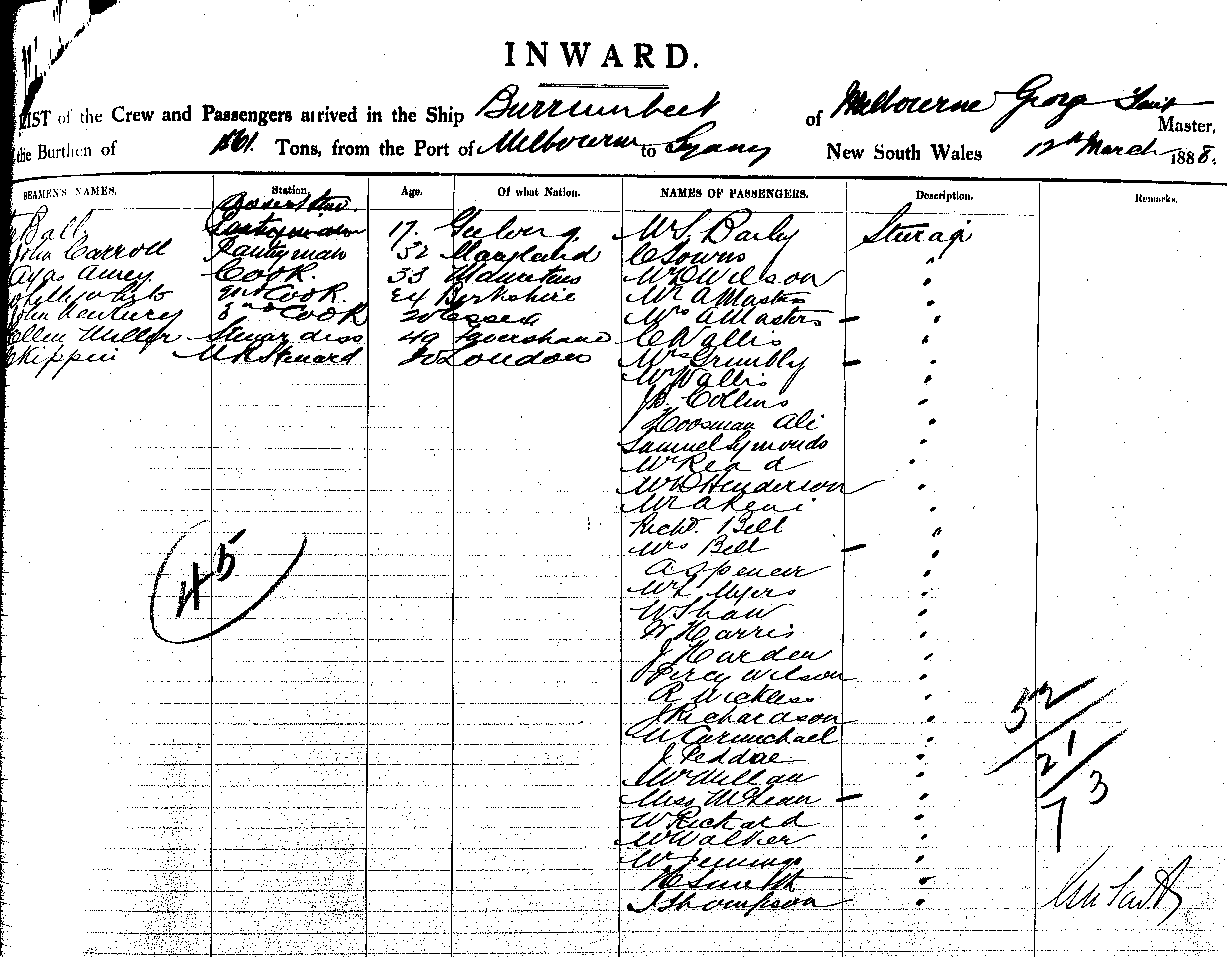 INWARD.
LIST of the Crew and Passengers arrived in the Ship Burrumbeet of Melbourne George Tait Master,
the Burthen of Tons, from the Port of Melbourne to Sydney New South Wales 12th March 1888.
SEAMEN'S NAMES. Station. Age. Of what Nation. NAMES OF PASSENGERS. Description. Remarks.
Ball Pantryman 17. Geelong Mr L Darby Steerage
John Carroll Pantryman 32 Maryland C Towns "
Cook. 33 Mauritius Wilson "
2nd Cook. 24 Berkshire Mr A Masters "
John 3rd Cook 20 Essex Mrs A Masters – "
Ellen Miller Stewardess 49 Faversham C Wallis "
Skippin Steward 20 London Mrs Grumbly – "
W Wallis "
J B Collins "
Hoosman Ali "
Samuel Symonds "
Mr Read "
Henderson "
Mr "
Richd. Bell "
Mrs Bell – "
A Spencer "
Mr L Myers "
W Shaw "
W Harris "
J Harden "
Percy Wilson "
R Wickless "
J Richardson "
W Carmichael "
J Peddae "
Mr Millan "
Miss McLean – "
W Richard "
W Walker "
W Jennings "
H Smith "
J Thompson "
45
52
21
7 3